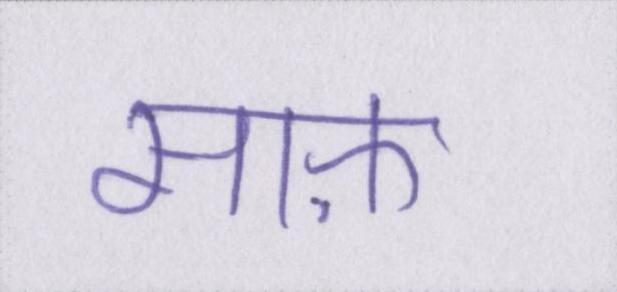 साफ़